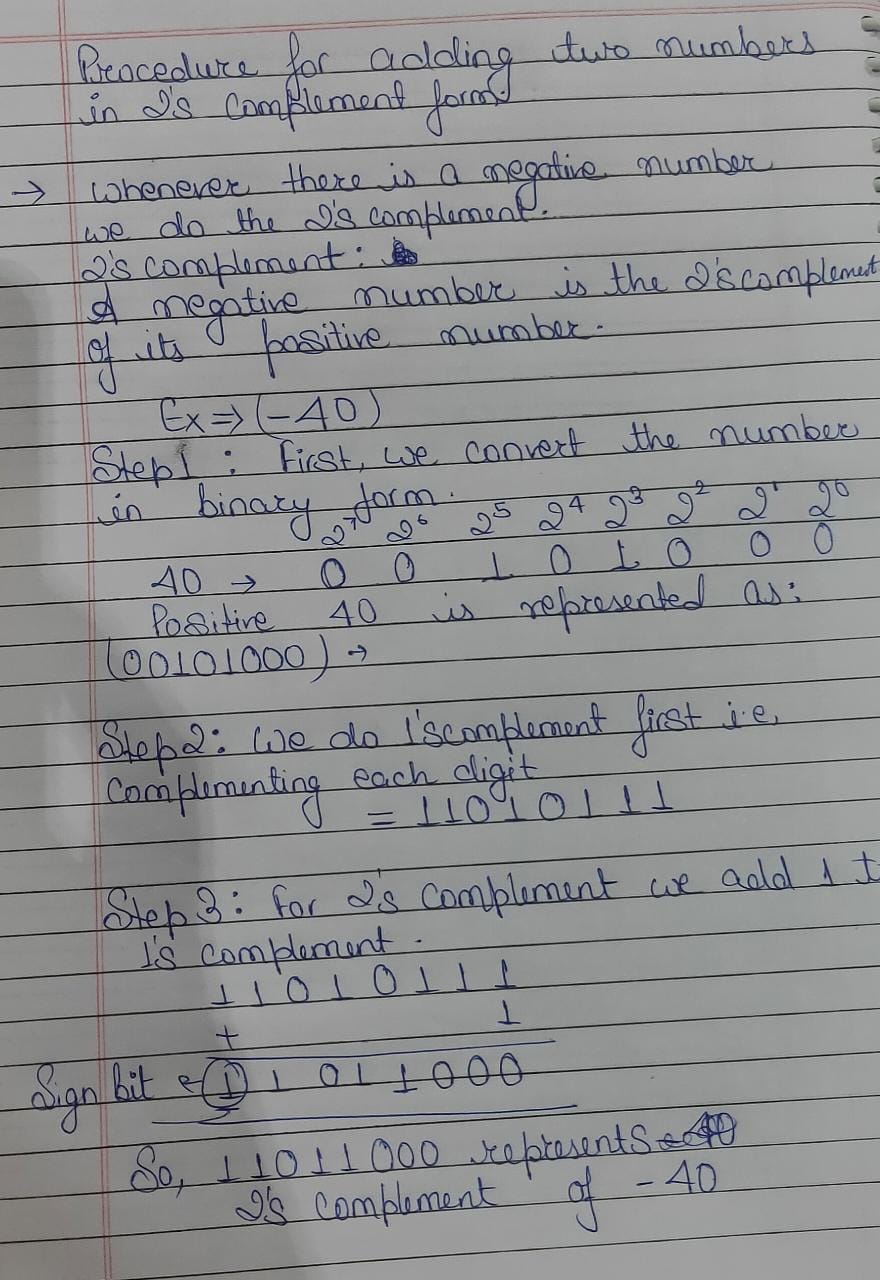 Procedure for adding two numbers
in 2's complement form.
→ Whenever there is a negative number
we do the 2's complement.
2's complement:
A negative number is the 2's complement
of its positive number.
Ex ⇒ (-40)
Step 1 : First, we convert the number
in binary form.
2⁷ 2⁶ 2⁵ 2⁴ 2³ 2² 2¹ 2⁰
40 → 0 0 1 0 1 0 0 0
Positive 40 is represented as:
(00101000) →
Step 2: We do 1's complement first i.e,
complementing each digit
= 11010111
Step 3: For 2's complement we add 1 t
1's complement.
1 1 0 1 0 1 1 1
1
+
Sign bit ← 1 1 0 1 1 0 0 0
So, 11011000 represents
2's complement of -40